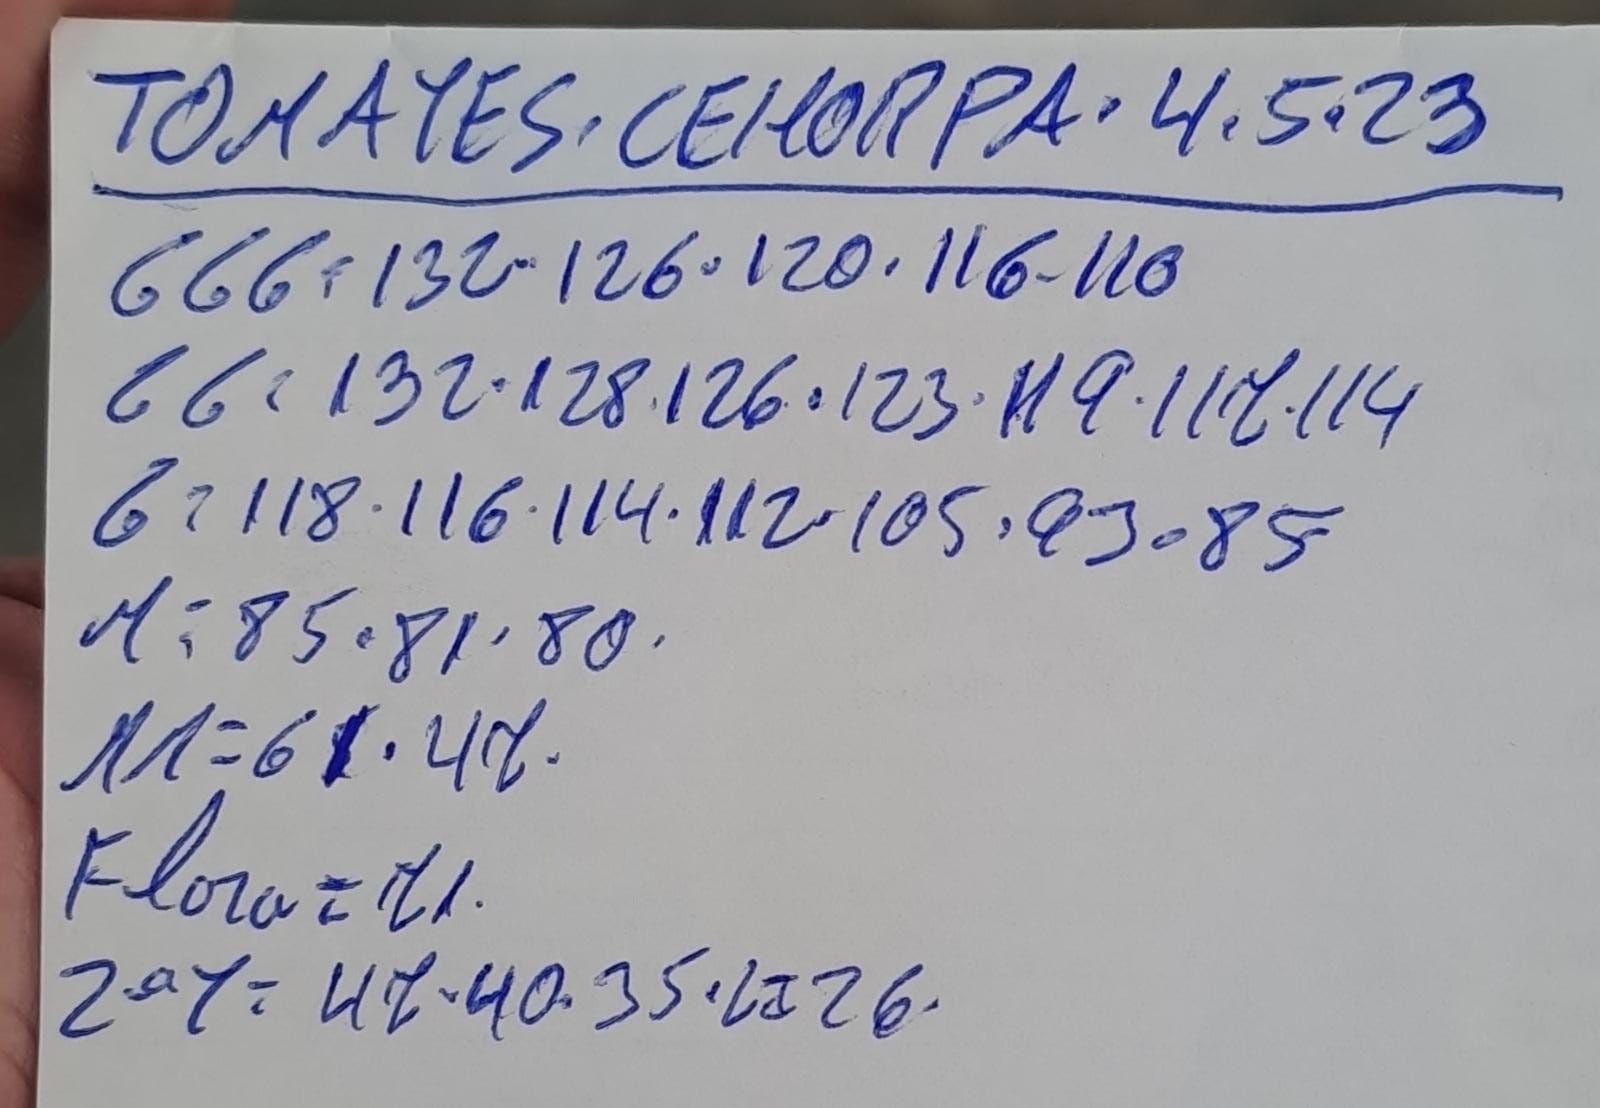 TOMATES. CEHORPA. 4.5.23
GGG = 132. 126. 120. 116-110
GG = 132. 128. 126. 123. 119. 117. 114
G = 118. 116. 114. 112. 105. 93. 85
M = 85. 81. 80.
MM = 61. 47.
Flora = 71.
2ªY = 47. 40. 35. 26.